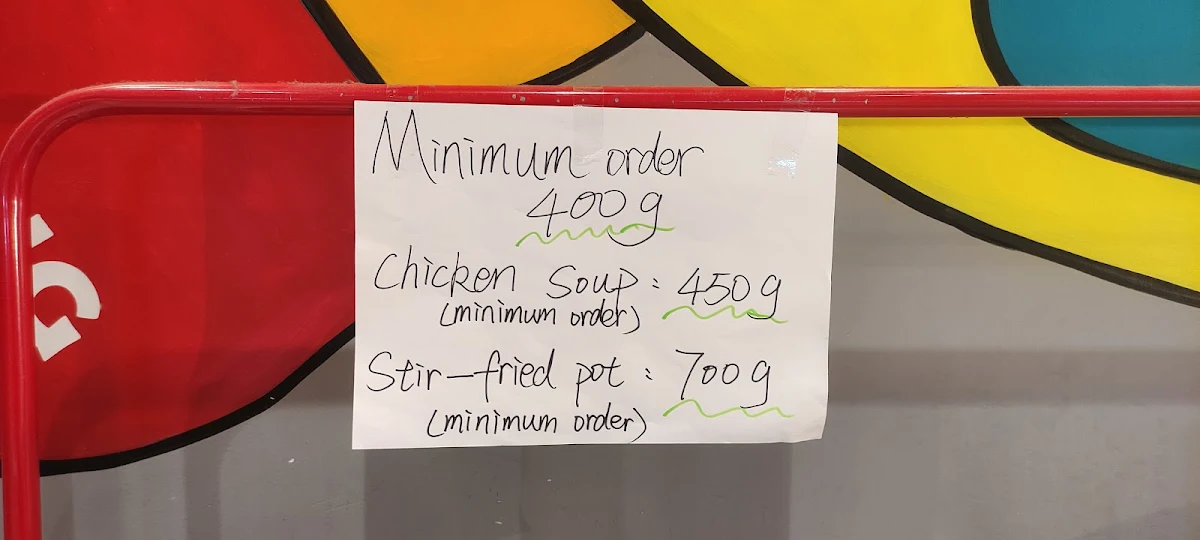 Minimum order
400g
Chicken Soup : 450g
(minimum order)
Stir-fried pot : 700g
(minimum order)